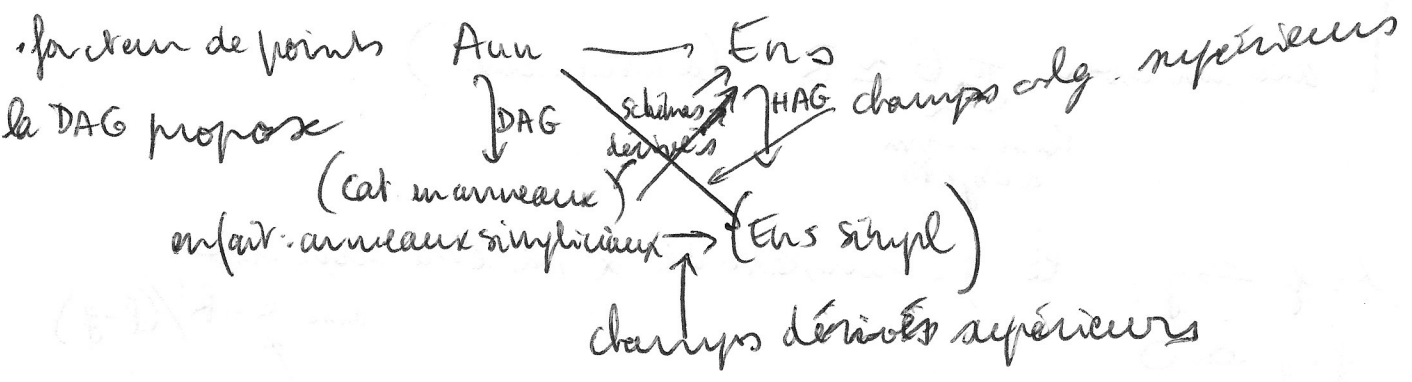 . foncteur de points Ann → Ens
la DAG propose DAG schémas dérivés HAG champs alg. supérieurs
(Cat en anneaux)
en fait : anneaux simpliciaux → (Ens simpl)
champs dérivés supérieurs